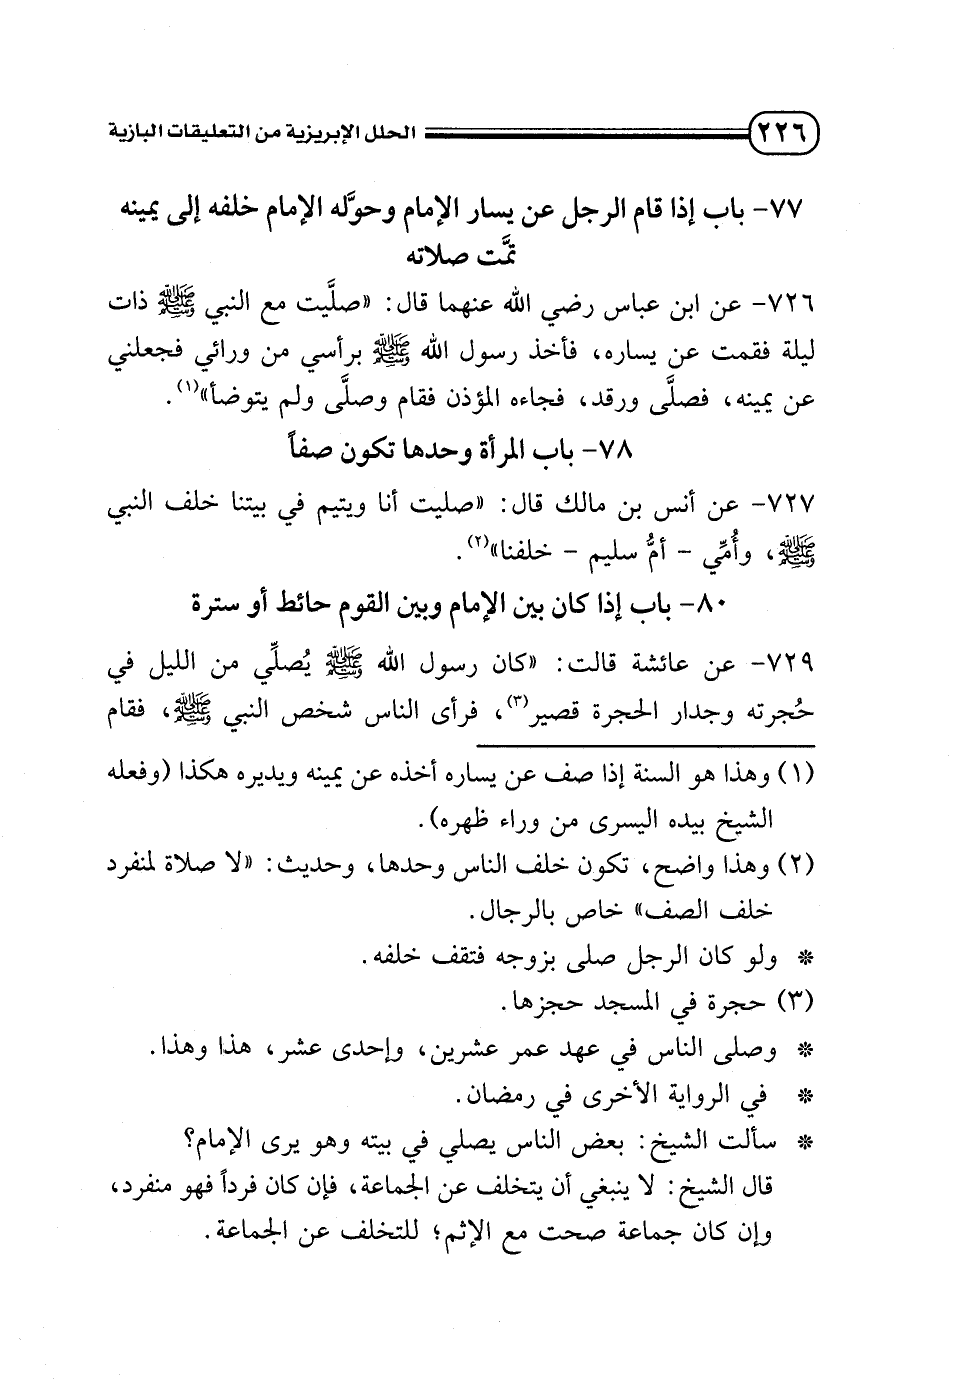 ٢٢٦ الحلل الإبريزية من التعليقات البازية
٧٧- باب إذا قام الرجل عن يسار الإمام وحوَّله الإمام خلفه إلى يمينه
تمَّت صلاته
٧٢٦- عن ابن عباس رضي الله عنهما قال: «صلَّيت مع النبي ﷺ ذات
ليلة فقمت عن يساره، فأخذ رسول الله ﷺ برأسي من ورائي فجعلني
عن يمينه، فصلَّى ورقد، فجاءه المؤذن فقام وصلَّى ولم يتوضأ»(١).
٧٨- باب المرأة وحدها تكون صفاً
٧٢٧- عن أنس بن مالك قال: «صليت أنا ويتيم في بيتنا خلف النبي
ﷺ، وأُمِّي - أمُّ سليم - خلفنا»(٢).
٨٠- باب إذا كان بين الإمام وبين القوم حائط أو سترة
٧٢٩- عن عائشة قالت: «كان رسول الله ﷺ يُصلِّي من الليل في
حُجرته وجدار الحجرة قصير(٣)، فرأى الناس شخص النبي ﷺ، فقام
(١) وهذا هو السنة إذا صف عن يساره أخذه عن يمينه ويديره هكذا (وفعله
الشيخ بيده اليسرى من وراء ظهره).
(٢) وهذا واضح، تكون خلف الناس وحدها، وحديث: «لا صلاة لمنفرد
خلف الصف» خاص بالرجال.
* ولو كان الرجل صلى بزوجه فتقف خلفه.
(٣) حجرة في المسجد حجزها.
* وصلى الناس في عهد عمر عشرين، وإحدى عشر، هذا وهذا.
* في الرواية الأخرى في رمضان.
* سألت الشيخ: بعض الناس يصلي في بيته وهو يرى الإمام؟
قال الشيخ: لا ينبغي أن يتخلف عن الجماعة، فإن كان فرداً فهو منفرد،
وإن كان جماعة صحت مع الإثم؛ للتخلف عن الجماعة.